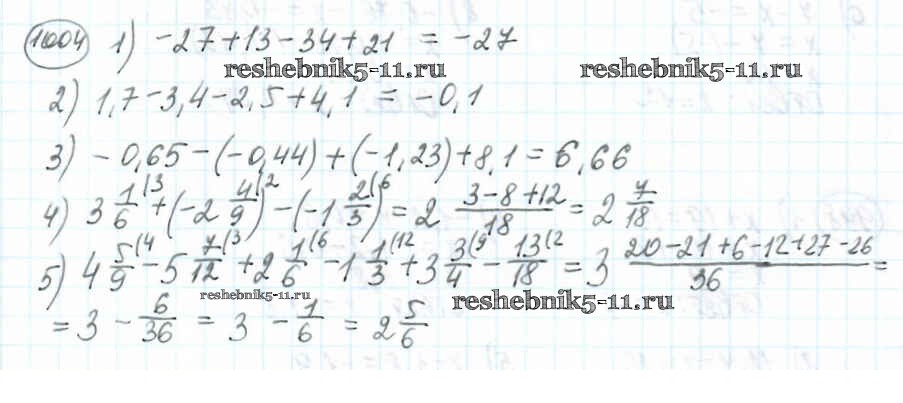 1004 1) -27+13-34+21 = -27
reshebnik5-11.ru reshebnik5-11.ru
2) 1,7-3,4-2,5+4,1 = -0,1
3) -0,65-(-0,44)+(-1,23)+8,1=6,66
4) 3 1/6 (3 + (-2 4/9 (2) - (-1 2/3 (6) = 2 (3-8+12)/18 = 2 7/18
5) 4 5/9 (4 - 5 7/12 (3 + 2 1/6 (6 - 1 1/3 (12 + 3 3/4 (9 - 13/18 (2 = 3 (20-21+6-12+27-26)/36 =
reshebnik5-11.ru reshebnik5-11.ru
= 3 - 6/36 = 3 - 1/6 = 2 5/6